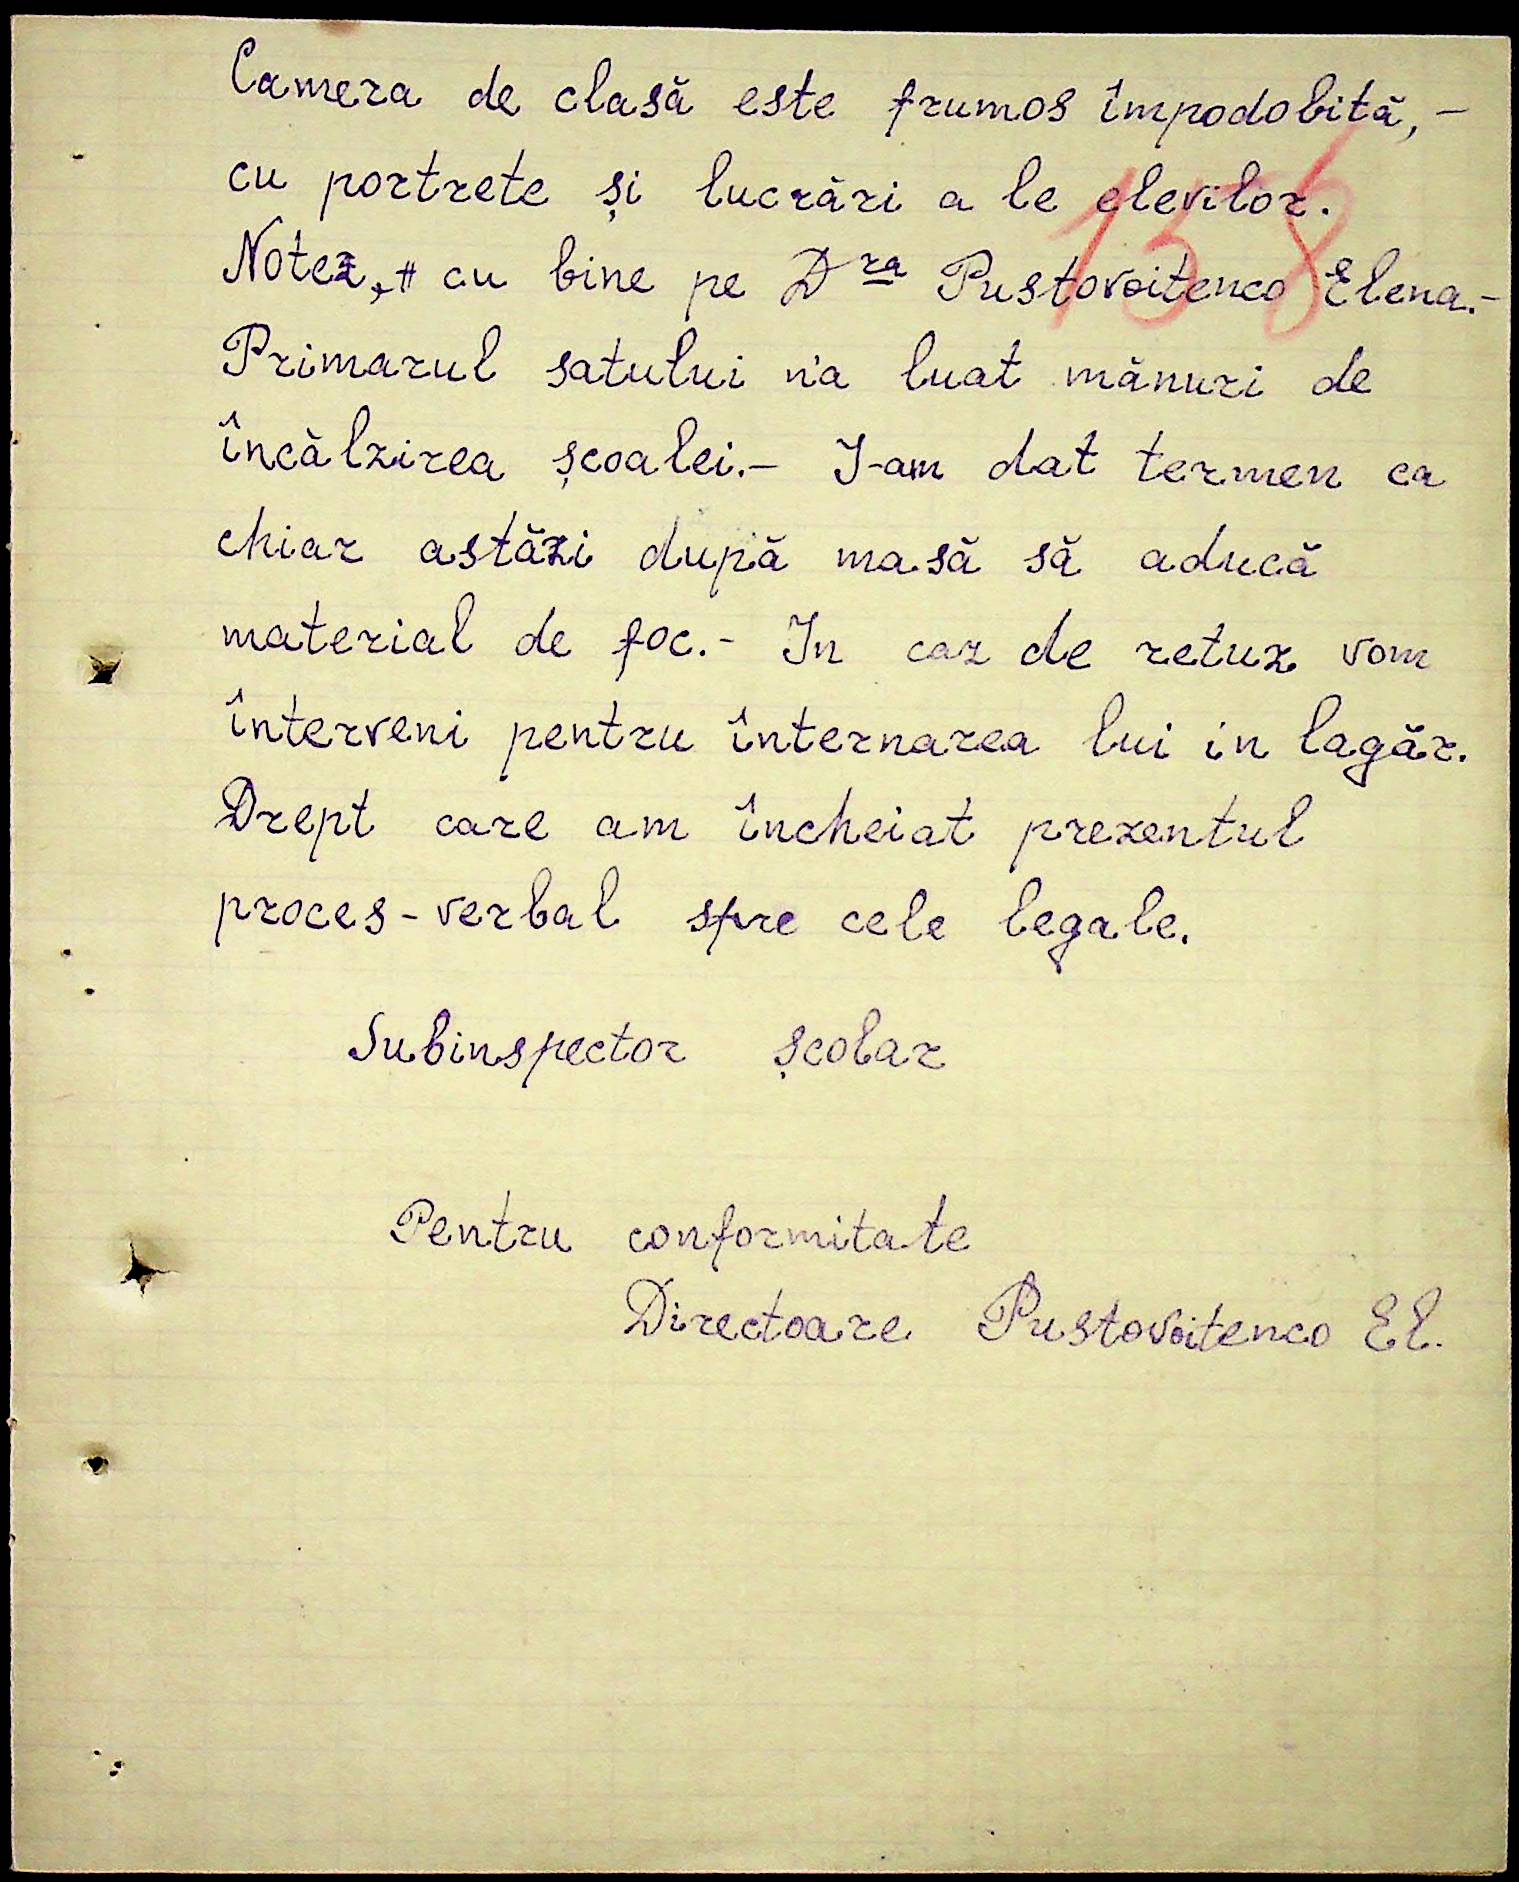 Camera de clasă este frumos împodobită, -
cu portrete și lucrări a le elevilor.
158
Notez, " cu bine pe Dra Pustovoitenco Elena.-
Primarul satului n'a luat mănuri de
încălzirea școalei.- I-am dat termen ca
chiar astăzi după masă să aducă
material de foc.- In caz de retuz vom
înterveni pentru înternarea lui in lagăr.
Drept care am încheiat prezentul
proces-verbal spre cele legale.
Subinspector școlar
Pentru conformitate
Directoare Pustovoitenco El.